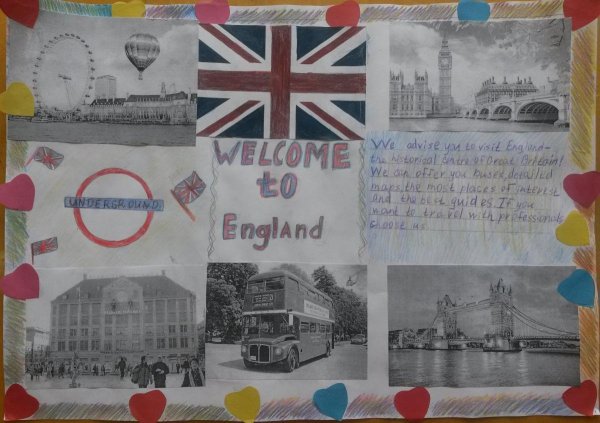 WELCOME
to
England
UNDERGROUND
We advise you to visit England-
the historical centre of Great Britain!
We can offer you buses, detailed
maps, the most places of interest
and the best guides. If you
want to travel with professionals
choose us.